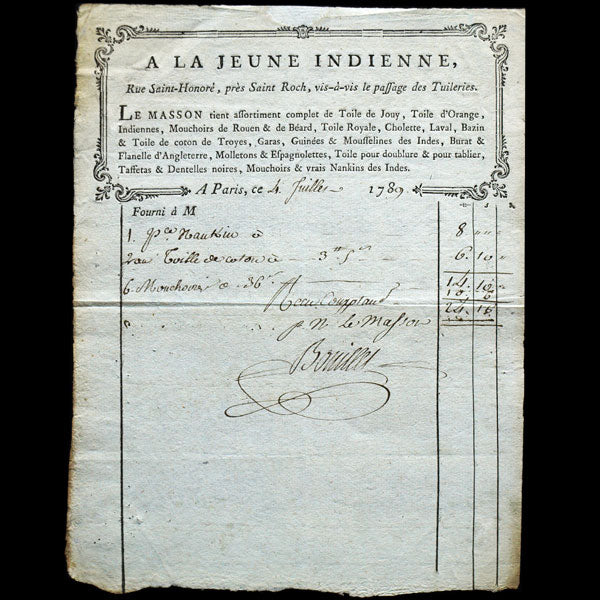 A LA JEUNE INDIENNE,
Rue Saint-Honoré, près Saint Roch, vis-à-vis le passage des Tuileries.
LE MASSON tient assortiment complet de Toile de Jouy, Toile d'Orange,
Indiennes, Mouchoirs de Rouen & de Béard, Toile Royale, Cholette, Laval, Bazin
& Toile de coton de Troyes, Garas, Guinées & Mousselines des Indes, Burat &
Flanelle d'Angleterre, Molletons & Espagnolettes, Toile pour doublure & pour tablier,
Taffetas & Dentelles noires, Mouchoirs & vrais Nankins des Indes.
A Paris, ce 4 Juillet 1789
Fourni à M
1. pce Nankin à 8
2 au Toille de coton à 3 5 6. 10
6. Mouchoirs à 36 14. 10
24. 16
pr Mr le Masson